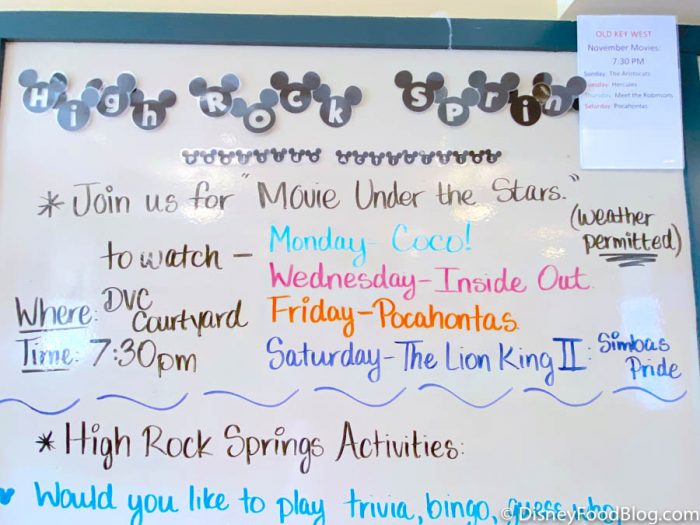 High Rock Sprin
OLD KEY WEST
November Movies:
7:30 PM
Sunday: The Aristocats
Tuesday: Hercules
Thursday: Meet the Robinsons
Saturday: Pocahontas
* Join us for "Movie Under the Stars."
(weather
permitted)
to watch - Monday - Coco!
Wednesday - Inside Out
Where: DVC Courtyard
Friday - Pocahontas
Time: 7:30pm
Saturday - The Lion King II: Simbas Pride
* High Rock Springs Activities:
Would you like to play trivia, bingo, guess who
©DisneyFoodBlog.com